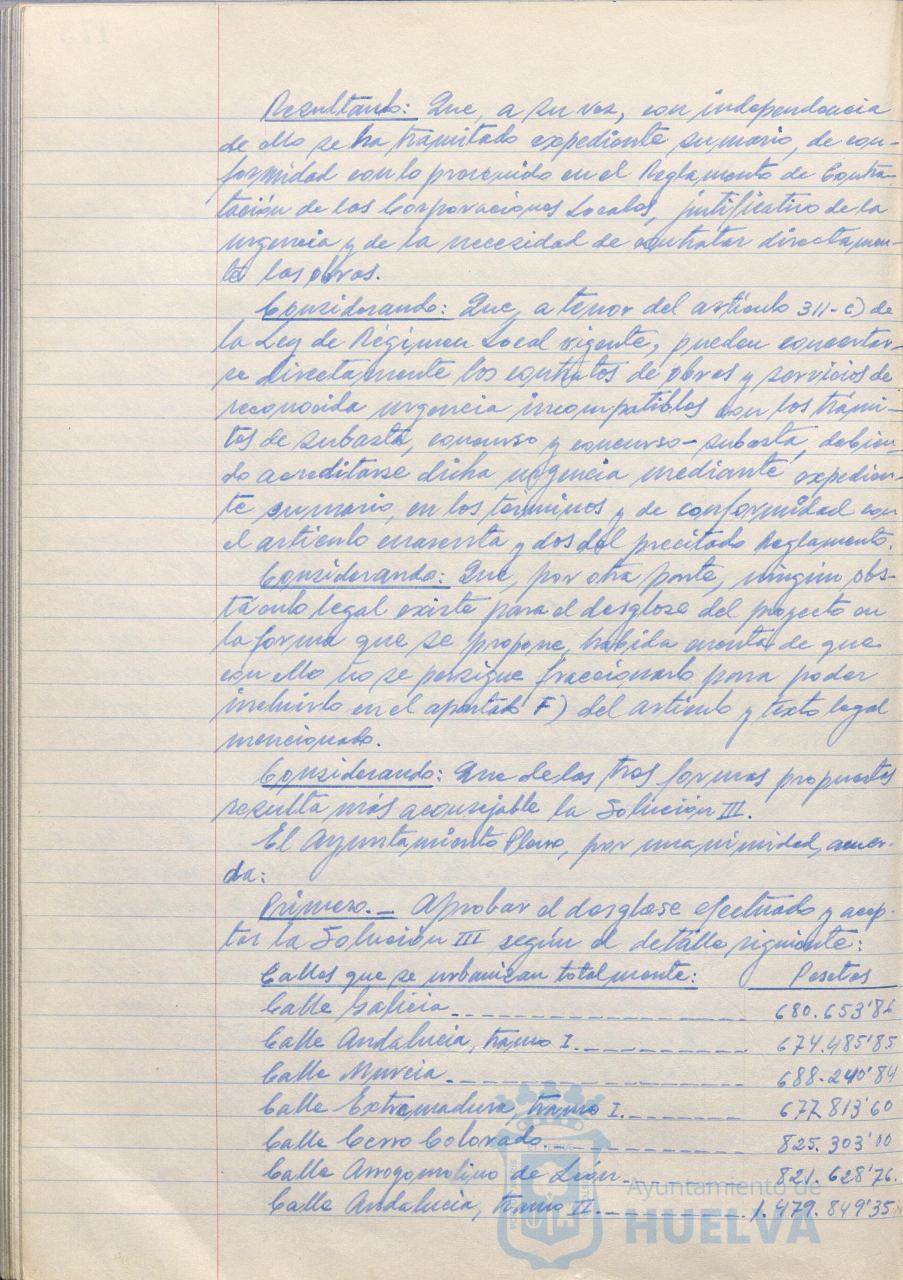 Resultando: Que, a su vez, con independencia
de ello se ha tramitado expediente sumario, de con-
formidad con lo prevenido en el Reglamento de Contra-
tación de las Corporaciones Locales, justificativo de la
urgencia y de la necesidad de contratar directamen-
te las obras.
Considerando: Que, a tenor del artículo 311-c) de
la Ley de Régimen Local vigente, pueden concertar-
se directamente los contratos de obras y servicios de
reconocida urgencia incompatibles con los trámi-
tes de subasta, concurso y concurso-subasta, debien-
do acreditarse dicha urgencia mediante expedien-
te sumario, en los términos y de conformidad con
el artículo cuarenta y dos del precitado Reglamento.
Considerando: Que, por otra parte, ningún obs-
táculo legal existe para el desglose del proyecto en
la forma que se propone, habida cuenta de que
con ello no se persigue fraccionarlo para poder
incluirlo en el apartado F) del artículo y texto legal
mencionado.
Considerando: Que de las tres formas propuestas
resulta más aconsejable la Solución III.
El Ayuntamiento Pleno, por unanimidad, acuer-
da:
Primero.- Aprobar el desglose efectuado y acep-
tar la Solución III según el detalle siguiente:
Calles que se urbanizan totalmente: Pesetas
Calle Galicia 680.653'86
Calle Andalucía, tramo I. 674.485'85
Calle Murcia 688.240'84
Calle Extremadura, tramo I. 677.813'60
Calle Cerro Colorado 825.303'00
Calle Arroyomolino de León 821.628'76
Calle Andalucía, tramo II. 1.479.849'35
Ayuntamiento de
HUELVA